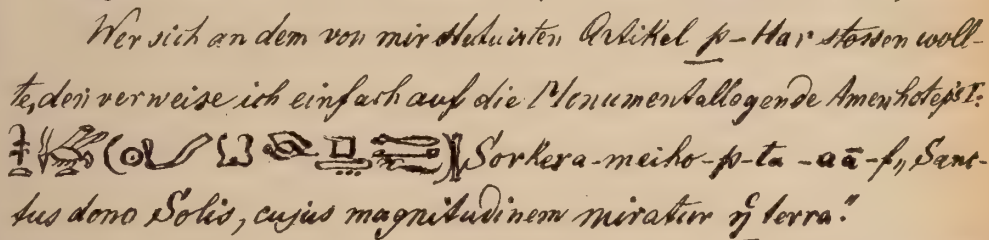 Wer sich an dem von mir statuirten Artikel p-Har stossen woll-
te, den verweise ich einfach auf die Monumentallegende Amenhoteps I:
Sorkera-meiho-p-ta-aā-f „Sanc-
tus dono Solis, cujus magnitudinem miratur ἡ terra."